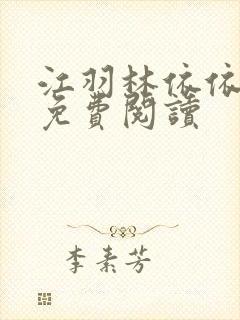 江羽林依依
免費閱讀
李素芳